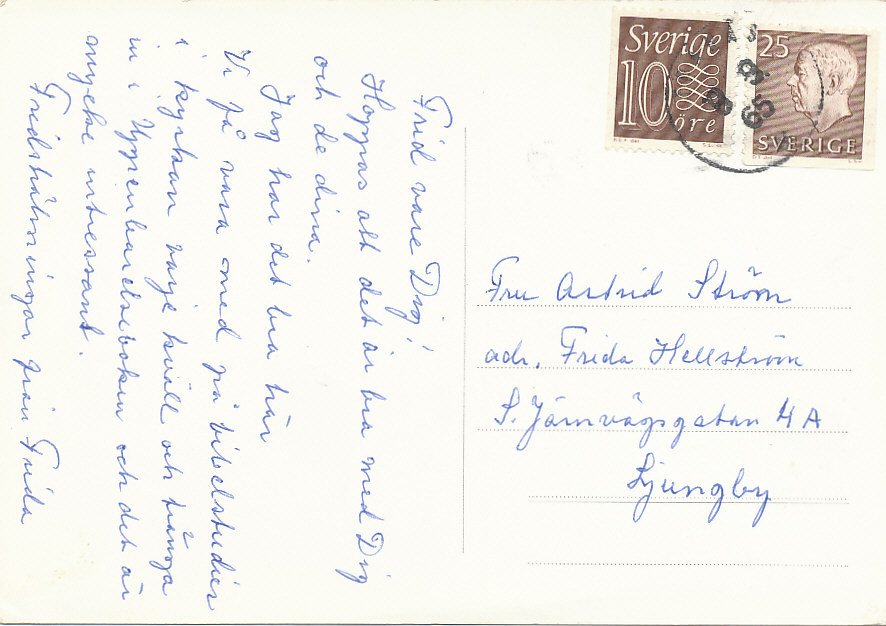 Frid vare Dig!
Hoppas att det är bra med Dig
och de dina.
Jag har det bra här
Vi få vara med på bibelstudier
i kyrkan varje kväll och tränga
in i Uppenbarelseboken och det är
mycke intressant.
Fridshälsningar från Frida
Sverige
10
öre
25
SVERIGE
Fru Astrid Ström
adr. Frida Hellström
S. Järnvägsgatan 4 A
Ljungby